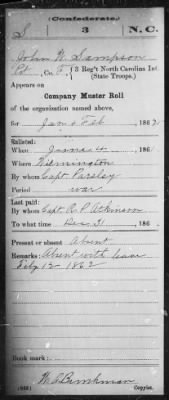 (Confederate.)
S 3 N.C.
John W. Sampson
Pvt, Co. F, 3 Reg't North Carolina Inf.
(State Troops.)
Appears on
Company Muster Roll
of the organization named above,
for Jan & Feb, 1862
Enlisted:
When June 4, 1861
Where Wilmington
By whom Capt. Parsley
Period war
Last paid:
By whom Capt. R. P. Atkinson
To what time Dec. 31, 186
Present or absent Absent
Remarks: Absent with leave
Feby 12 1862
Book mark:
(642) Copyist.